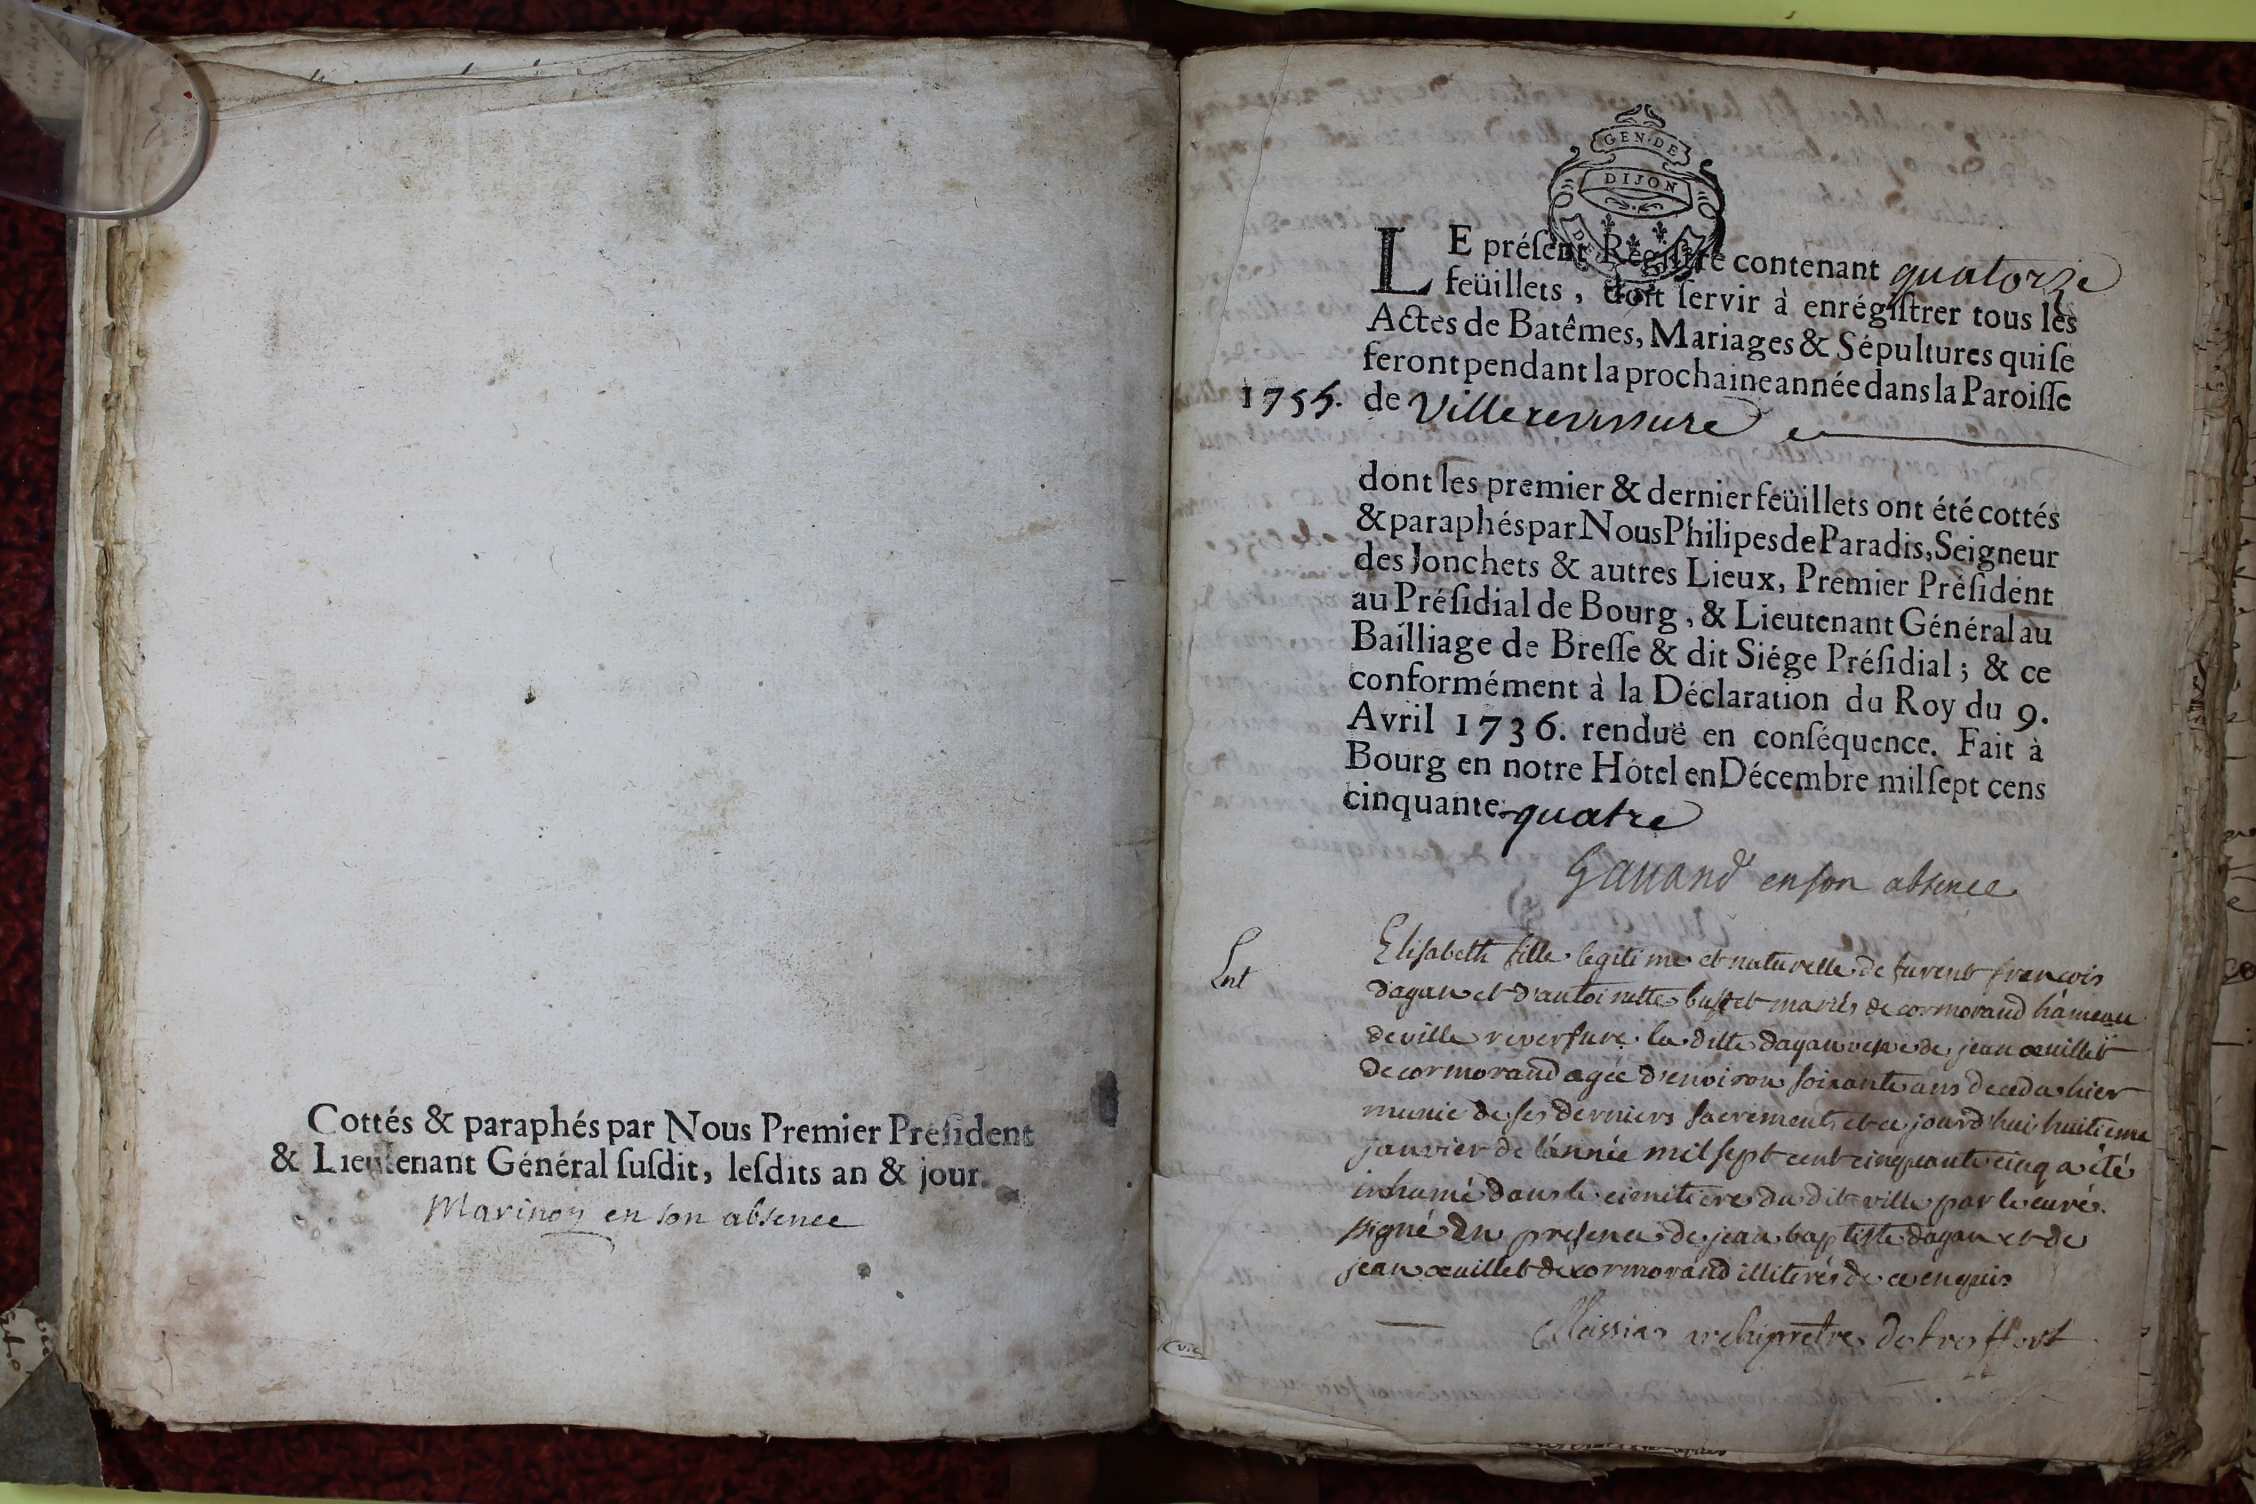 Cottés & paraphés par Nous Premier Préſident
& Lieutenant Général ſuſdit, leſdits an & jour.
Marinon en son absence
GEN. DE
DIJON
LE préſent Regiſtre contenant quatorze
feüillets, doit ſervir à enrégiſtrer tous les
Actes de Batêmes, Mariages & Sépultures qui ſe
feront pendant la prochaine année dans la Paroiſſe
1755. de Villereversure
dont les premier & dernier feüillets ont été cottés
& paraphés par Nous Philipes de Paradis, Seigneur
des Jonchets & autres Lieux, Premier Préſident
au Préſidial de Bourg, & Lieutenant Général au
Bailliage de Breſſe & dit Siége Préſidial ; & ce
conformément à la Déclaration du Roy du 9.
Avril 1736. renduë en conſéquence. Fait à
Bourg en notre Hôtel en Décembre mil ſept cens
cinquante-quatre
Gauand en son absence
Elisabeth fille legitime et naturelle de furent françois
dagan et d'antoinette buffet mariés de cormorand hâmeau
de ville reversure la ditte dagan veve de jean œuillet
de cormorand agée d'environ soixante ans deceda hier
munie de ses derniers sacrements et ce jourd'hui huitieme
janvier de l'année mil sept cent cinquante cinq a été
inhumé dans le cimetiere du dit ville par le curé
signé en presence de jean baptiste dagan et de
jean œuillet de cormorand illiterés de ce enquis
Messia archiprêtre de treffort